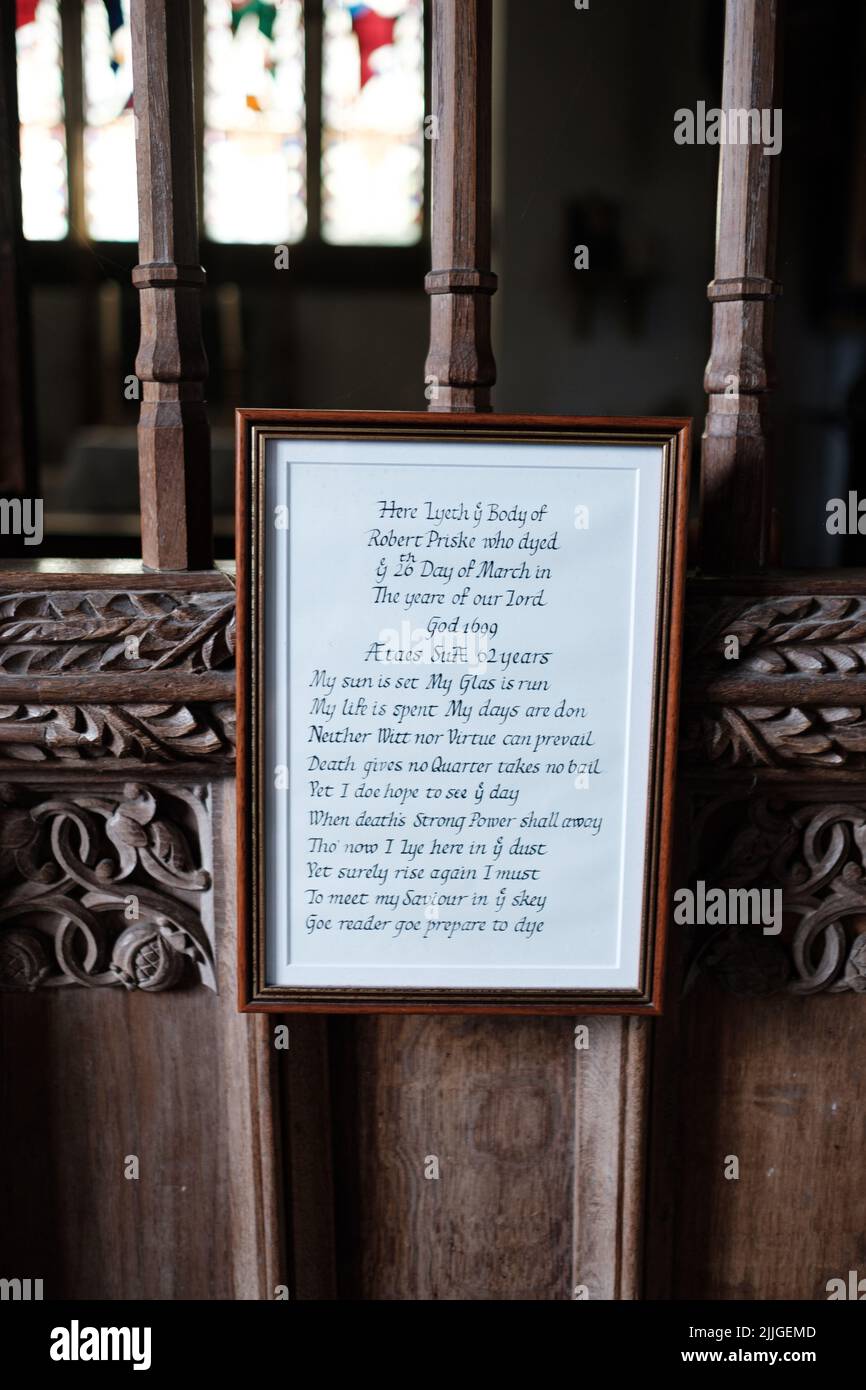 Here Lyeth yͤ Body of
Robert Priske who dyed
yͤ 26th Day of March in
The yeare of our Lord
God 1699
Ætaes SuÆ 62 years
My sun is set My Glas is run
My life is spent My days are don
Neither Witt nor Virtue can prevail
Death gives no Quarter takes no bail
Yet I doe hope to see yͤ day
When death's Strong Power shall away
Tho' now I Lye here in yͤ dust
Yet surely rise again I must
To meet my Saviour in yͤ skey
Goe reader goe prepare to dye
alamy
alamy
Image ID: 2JJGEMD
www.alamy.com